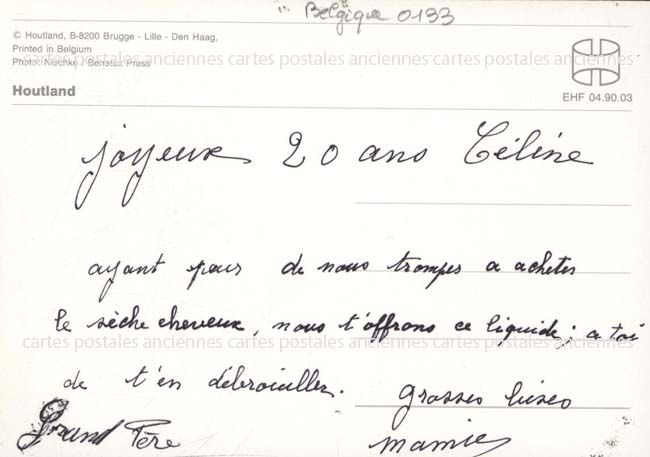 Belgique 0133
© Houtland, B-8200 Brugge - Lille - Den Haag,
Printed in Belgium
cartes postales anciennes cartes postales anciennes cartes postales anciennes
Photo: Nischke / Benelux Press
Houtland
EHF 04.90.03
joyeux 20 ans Céline
ayant peur de nous tromper a acheter
le sèche cheveux, nous t'offrons ce liquide; a toi
cartes postales anciennes cartes postales anciennes cartes postales anciennes
de t'en débrouiller. grosses bises
Grand Père mamie